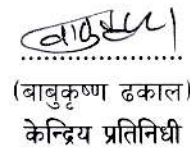 (बाबुकृष्ण ढकाल)
केन्द्रिय प्रतिनिधी